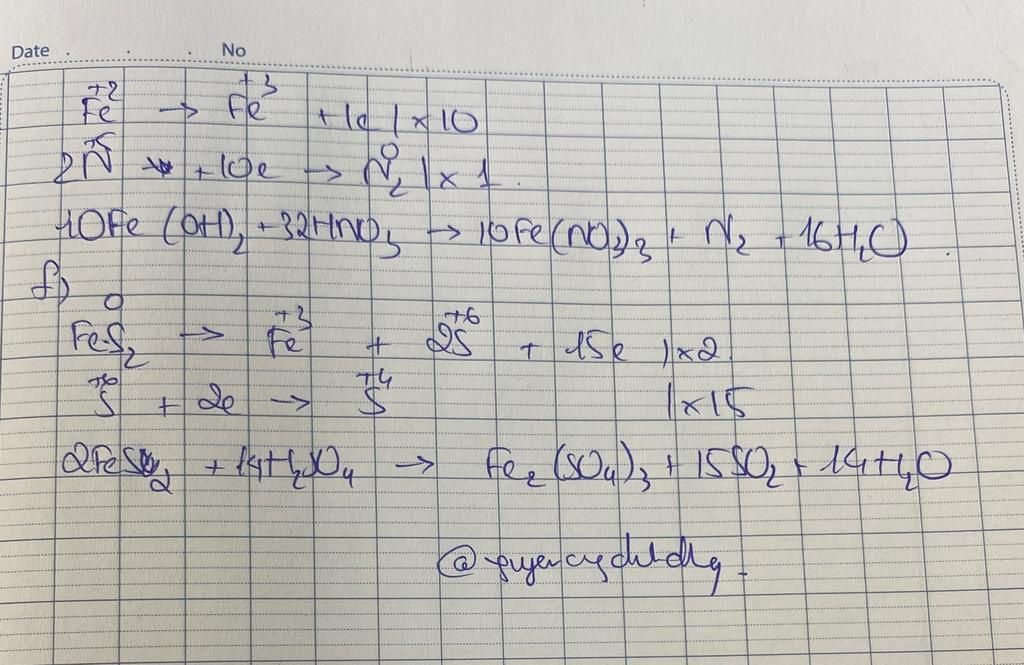 Date . . . No
+2 +3
Fe → Fe +1e | x 10
+5 0
2N + 10e → N₂ | x 1.
10Fe(OH)₂ + 32HNO₃ → 10Fe(NO₃)₃ + N₂ + 16H₂O.
f)
0 +3 +6
FeS₂ → Fe + 2S + 15e | x 2
+6 +4
S + 2e → S | x 15
2FeS₂ + 14H₂SO₄ → Fe₂(SO₄)₃ + 15SO₂ + 14H₂O